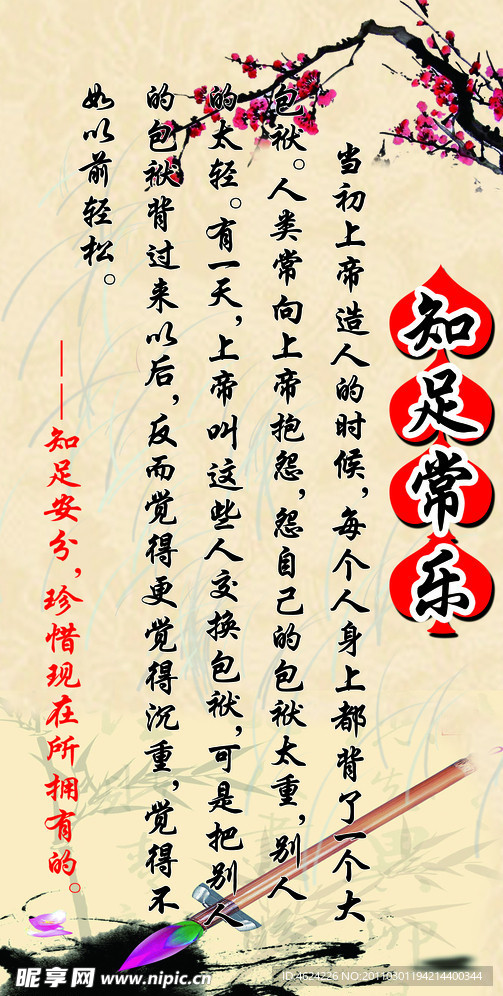 知足常乐
当初上帝造人的时候，每个人身上都背了一个大
包袱。人类常向上帝抱怨，怨自己的包袱太重，别人
的太轻。有一天，上帝叫这些人交换包袱，可是把别人
的包袱背过来以后，反而觉得更觉得沉重，觉得不
如以前轻松。
——知足安分，珍惜现在所拥有的。
昵享网 www.nipic.cn
ID:4624226 NO:20110301194214400344